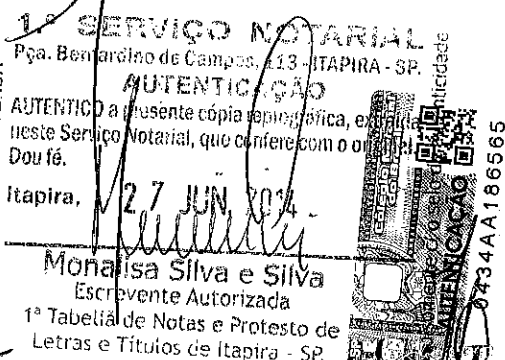 1.º SERVIÇO NOTARIAL
Pça. Bernardino de Campos, 113 - ITAPIRA - SP.
AUTENTICAÇÃO
AUTENTICO a presente cópia reprográfica, extraída
neste Serviço Notarial, que confere com o original.
Dou fé.
Itapira, 27 JUN 2014
Monalisa Silva e Silva
Escrevente Autorizada
1ª Tabeliã de Notas e Protesto de
Letras e Títulos de Itapira - SP.
AUTENTICAÇÃO
0434AA186565